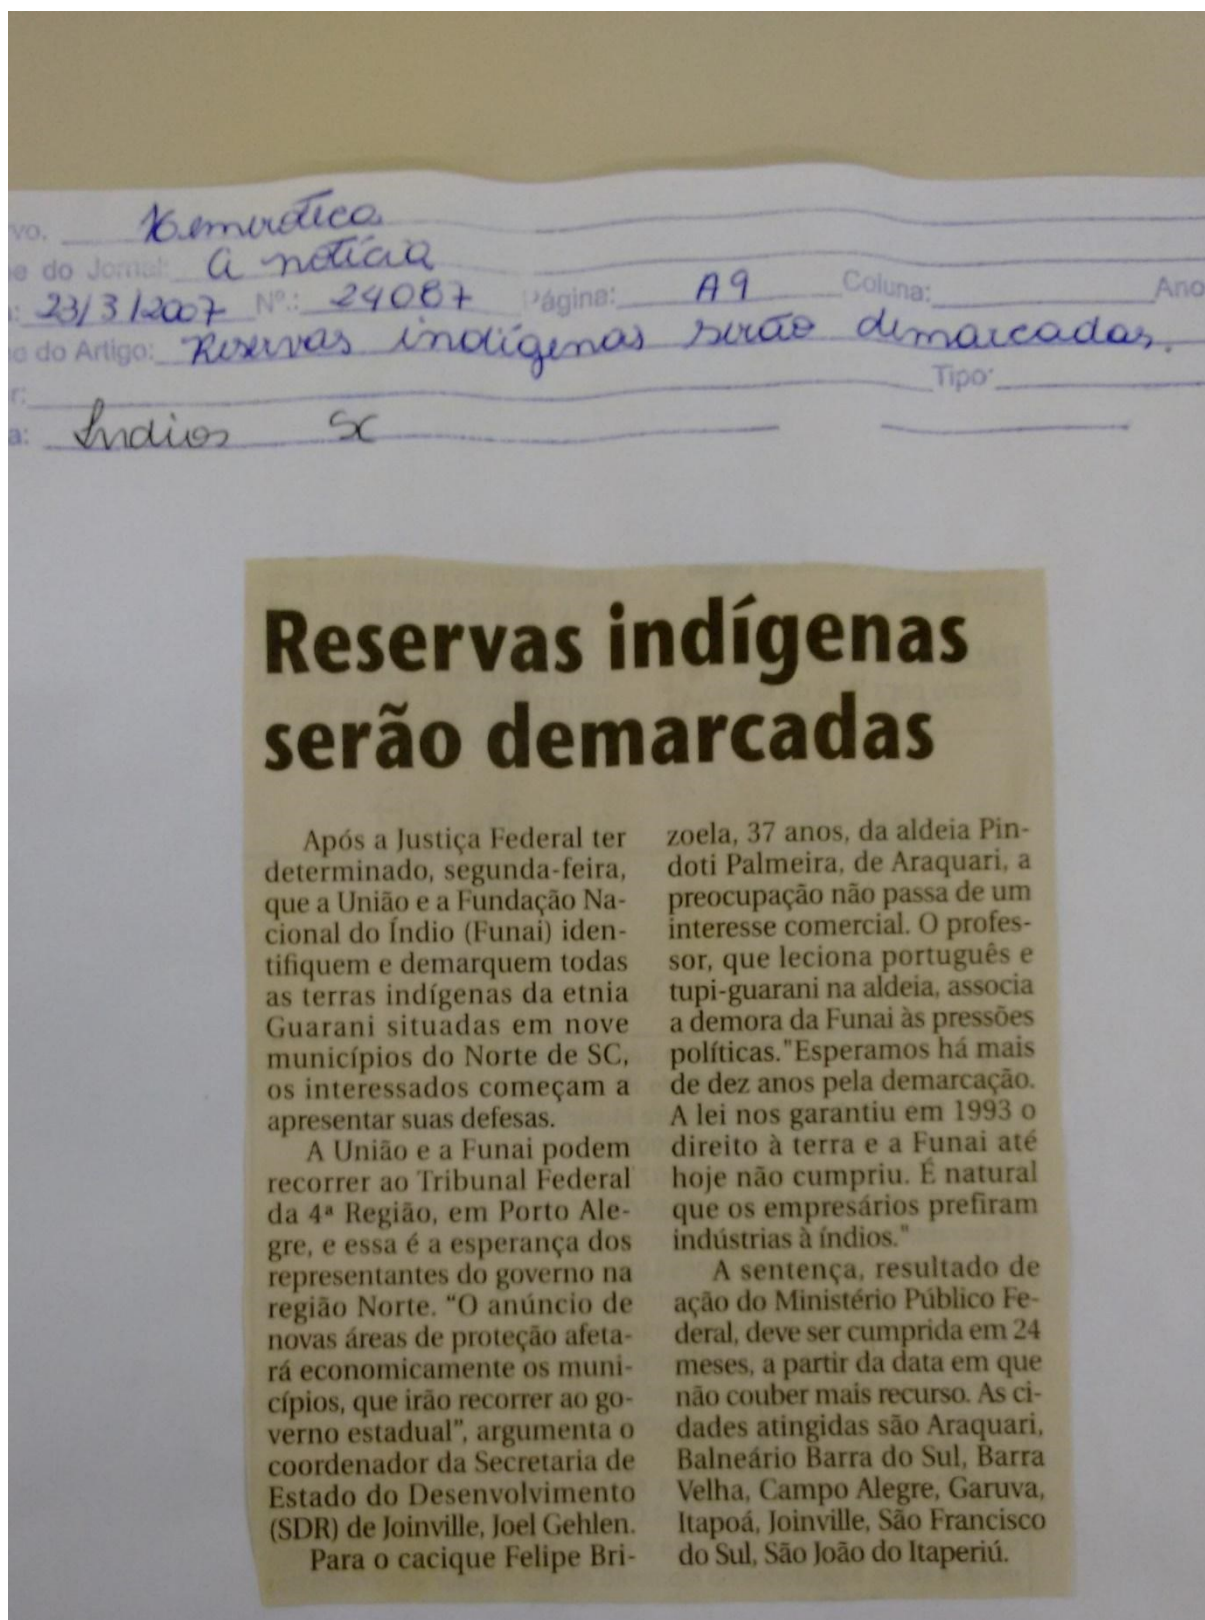 vo. Hemeroteca
e do Jornal: A notícia
: 23/3/2007 Nº.: 24087 Página: A9 Coluna: Ano
o do Artigo: Reservas indígenas serão demarcadas.
r: Tipo:
a: Índios SC
Reservas indígenas
serão demarcadas
Após a Justiça Federal ter
determinado, segunda-feira,
que a União e a Fundação Na-
cional do Índio (Funai) iden-
tifiquem e demarquem todas
as terras indígenas da etnia
Guarani situadas em nove
municípios do Norte de SC,
os interessados começam a
apresentar suas defesas.
A União e a Funai podem
recorrer ao Tribunal Federal
da 4ª Região, em Porto Ale-
gre, e essa é a esperança dos
representantes do governo na
região Norte. “O anúncio de
novas áreas de proteção afeta-
rá economicamente os muni-
cípios, que irão recorrer ao go-
verno estadual”, argumenta o
coordenador da Secretaria de
Estado do Desenvolvimento
(SDR) de Joinville, Joel Gehlen.
Para o cacique Felipe Bri-
zoela, 37 anos, da aldeia Pin-
doti Palmeira, de Araquari, a
preocupação não passa de um
interesse comercial. O profes-
sor, que leciona português e
tupi-guarani na aldeia, associa
a demora da Funai às pressões
políticas."Esperamos há mais
de dez anos pela demarcação.
A lei nos garantiu em 1993 o
direito à terra e a Funai até
hoje não cumpriu. É natural
que os empresários prefiram
indústrias à índios."
A sentença, resultado de
ação do Ministério Público Fe-
deral, deve ser cumprida em 24
meses, a partir da data em que
não couber mais recurso. As ci-
dades atingidas são Araquari,
Balneário Barra do Sul, Barra
Velha, Campo Alegre, Garuva,
Itapoá, Joinville, São Francisco
do Sul, São João do Itaperiú.